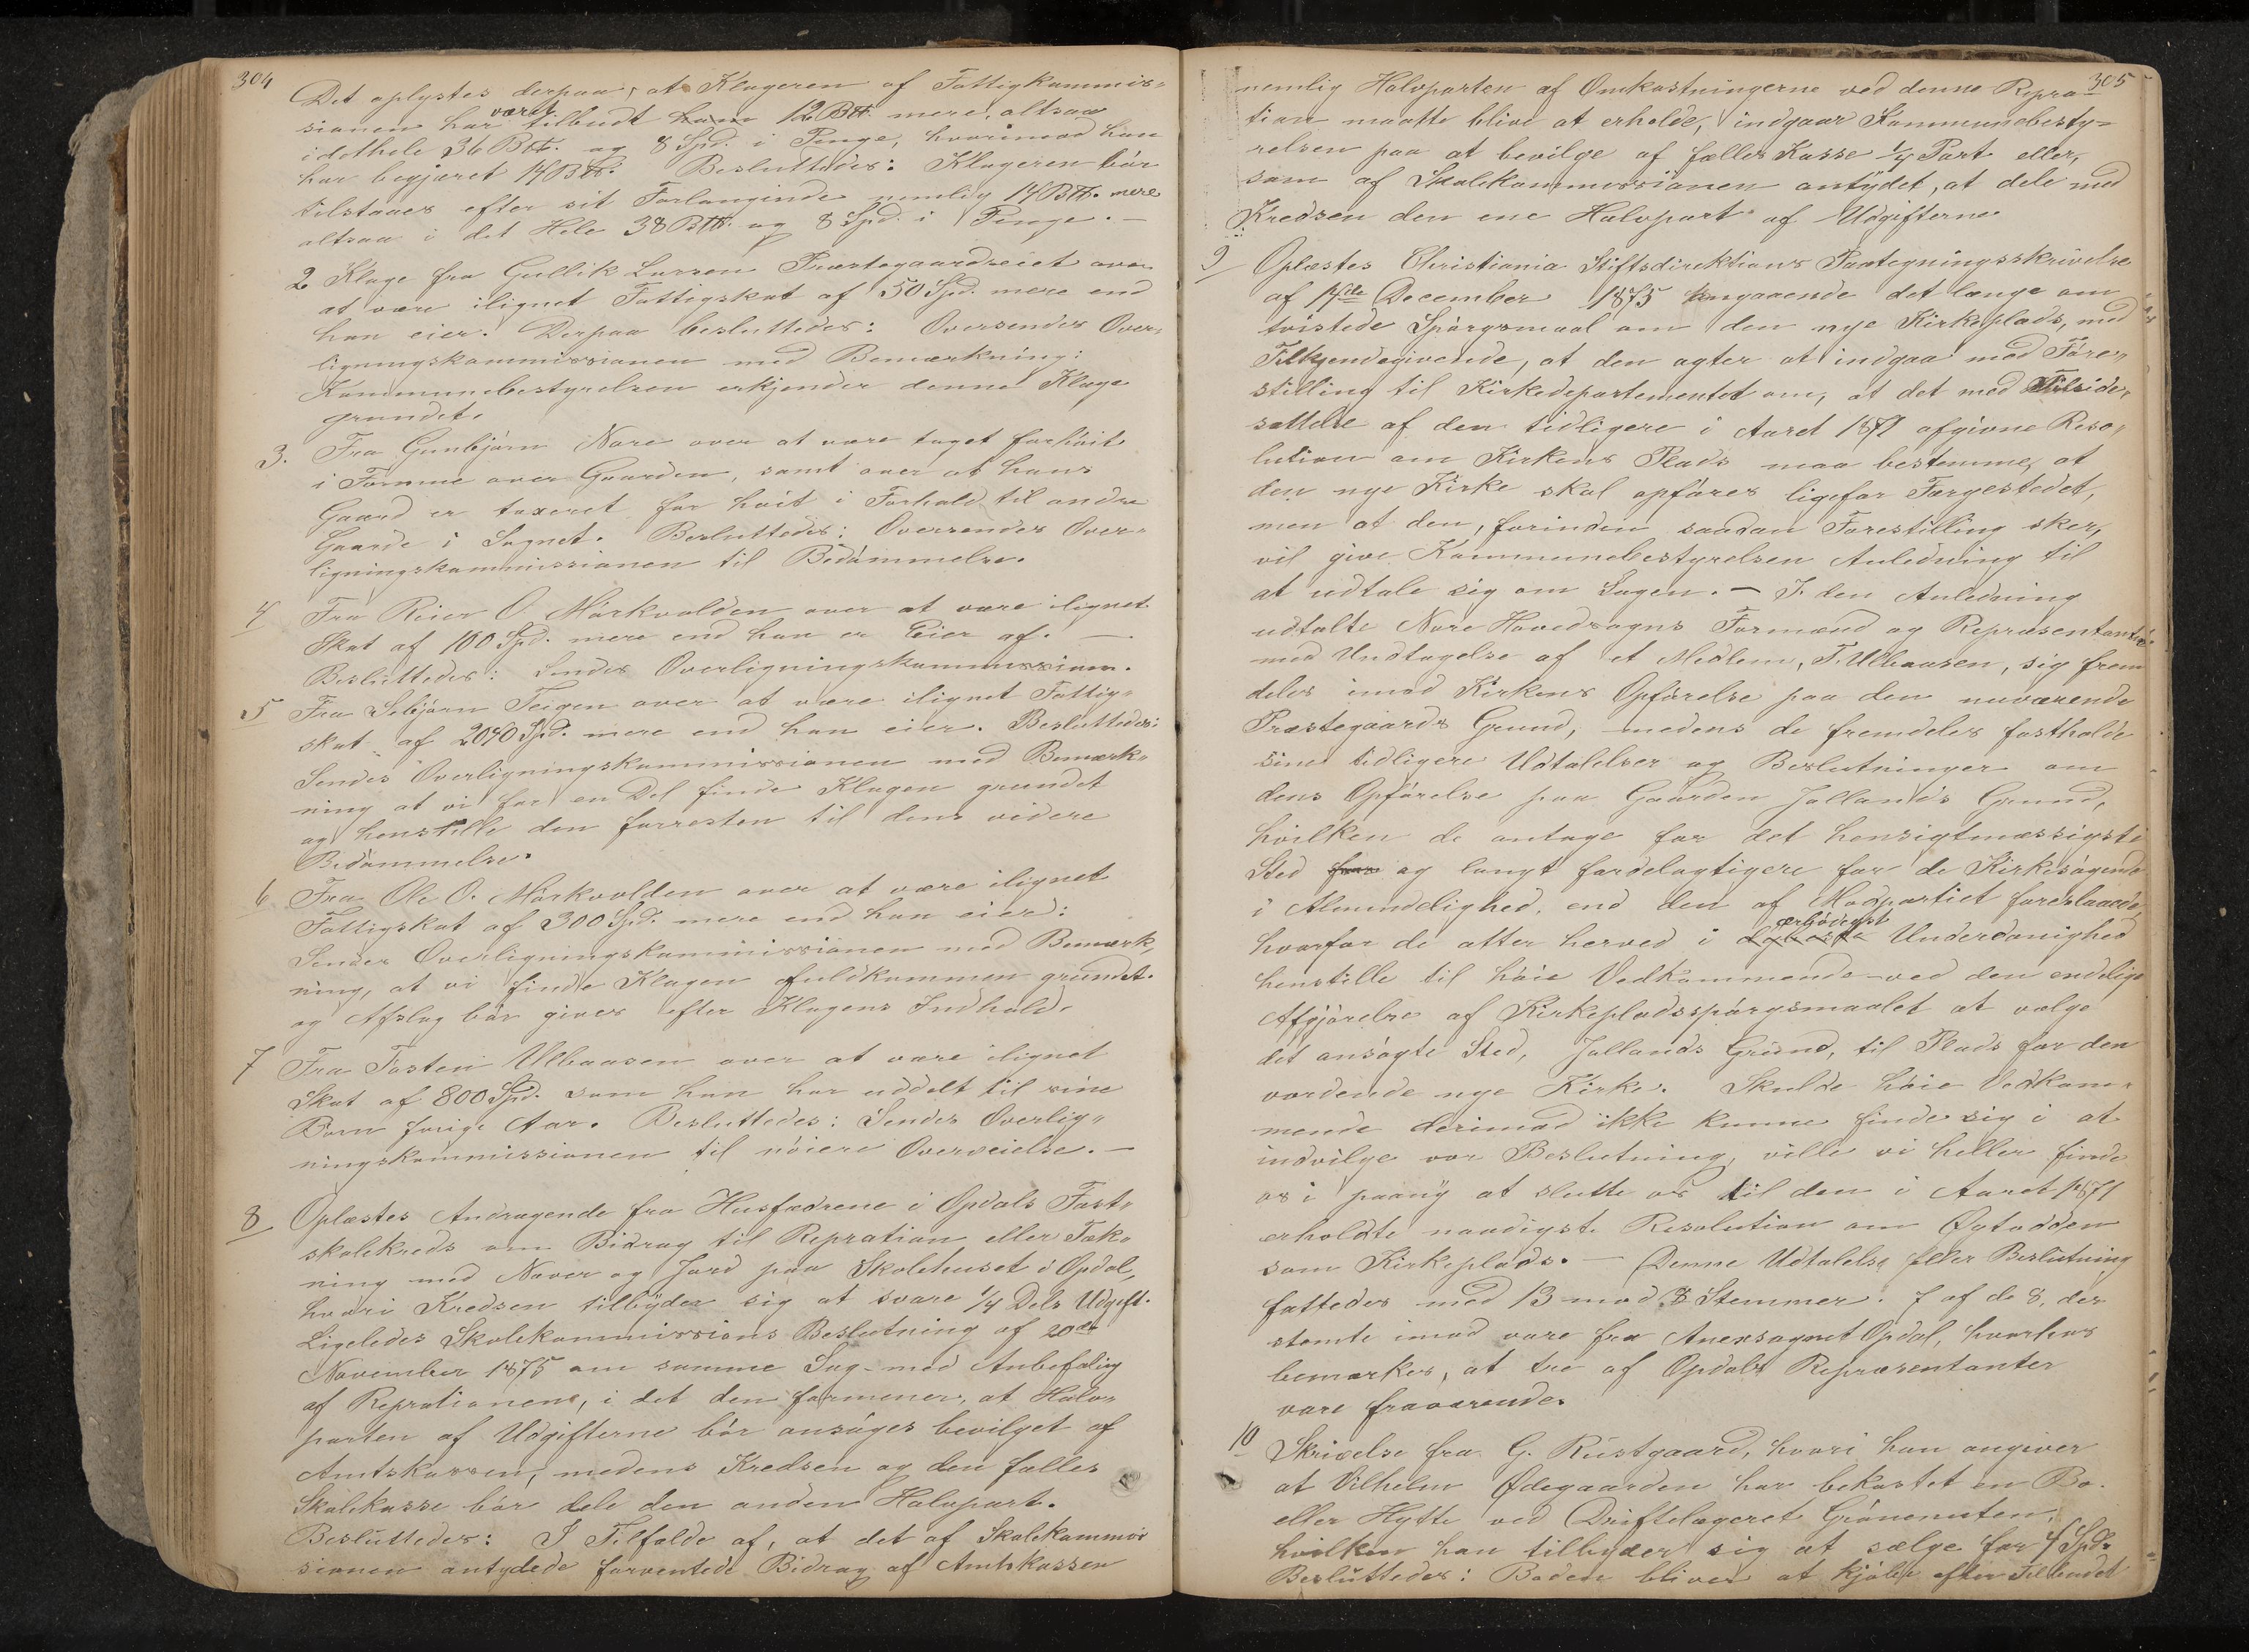 304
Det oplystes derpaa, at Klageren af Fattigkommis-
sionen har været tilbudt ham 12 Btt. mere, altsaa
idethele 36 Btt. og 8 Spd. i Penge, hvorimod han
har begjæret 14 Btt. Besluttedes: Klageren bör
tilstaaes efter sit Forlangende nemlig 14 Btt. mere
altsaa i det Hele 38 Btt. og 8 Spd. i Penge. —
2 Klage fra Gullik Larsen Præstegaardseiet over
at være ilignet Fattigskat af 50 Spd. mere end
han eier. Derpaa besluttedes: Oversendes Over-
ligningskommissionen med Bemærkning:
Kommunebestyrelsen erkjender denne Klage
grundet.
3. Fra Gunbjörn Nore over at være taget forhöit
i Formue over Gaarden, samt over at hans
Gaard er taxeret for höit i Forhold til andre
Gaarde i Sognet. Besluttedes: Oversendes Over-
ligningskommissionen til Bedömmelse.
4 Fra Reier O. Mörkvolden over at være ilignet
Skat af 100 Spd. mere end han er Eier af. —
Besluttedes: Sendes Overligningskommissionen.
5 Fra Sebjörn Teigen over at være ilignet Fattig-
skat af 2040 Spd. mere end han eier. Besluttedes:
Sendes Overligningskommissionen med Bemærk-
ning at vi for en Del finde Klagen grundet
og henstille den forresten til dens videre
Bedömmelse.
6 Fra Ole O. Mörkvolden over at være ilignet
Fattigskat af 300 Spd. mere end han eier:
Sendes Overligningskommissionen med Bemærk-
ning, at vi finde Klagen fuldkommen grundet.
og Afslag bör gives efter Klagens Indhold.
7 Fra Tosten Ulbaasen over at være ilignet
Skat af 800 Spd. som han har uddelt til sine
Börn forige Aar. Besluttedes: Sendes Overlig-
ningskommissionen til nöiere Overveielse. —
8 Oplæstes Andragende fra Husfædrene i Opdals Fast-
skolekreds om Bidrag til Repration eller Tæk-
ning med Næver og Jord paa Skolehuset i Opdal,
hvori Kredsen tilbyder sig at svare 1/4 Dels Udgift.
Ligeledes Skolekommissions Beslutning af 20de
November 1875 om samme Sag med Anbefaling
af Reprationen, i det den formener, at Halv-
parten af Udgifterne bör ansöges bevilget af
Amtskassen, medens Kredsen og den fælles
Skolekasse bör dele den anden Halvpart.
Besluttedes: I Tilfælde af, at det af Skolekommis
sionen antydede forventede Bidrag af Amtskassen
305
nemlig Halvparten af Omkostningerne ved denne Repra-
tion maatte blive at erholde, indgaar Kommunebesty-
relsen paa at bevilge af fælles Kasse 1/4 Part eller,
som af Skolekommissionen antydet, at dele med
Kredsen den ene Halvpart af Udgifterne
9 Oplæstes Christiania Stiftsdirektions Paategningsskrivelse
af 17de December 1875 angaaende det længe om
tvistede Spörgsmaal om den nye Kirkeplads, med
Tilkjendegivende, at den agter at indgaa med Före-
stilling til Kirkedepartementet om, at det med Tilside-
sættelse af den tidligere i Aaret 1871 afgivne Reso-
lution om Kirkens Plads maa bestemme, at
den nye Kirke skal opföres ligefor Færgestedet,
men at den, forinden saadan Forestilling sker,
vil give Kommunebestyrelsen Anledning til
at udtale sig om Sagen. — I den Anledning
udtalte Nore Hovedsogns Formænd og Repræsentanter
med Undtagelse af et Medlem, T. Ulbaasen, sig frem
deles imod Kirkens Opförelse paa den nuværende
Præstegaards Grund, medens de fremdeles fastholde
sine tidligere Udtalelser og Beslutninger om
dens Opförelse paa Gaarden Jallands Grund,
hvilken de antage for det hensigtmæssigste
Sted for og langt fordelagtigere for de Kirkesögende
i Almindelighed, end den af Modpartiet foreslaaede,
hvorfor de atter herved i ærbödigst Underdanighed
henstille til höie Vedkommende ved den endelige
Afgjörelse af Kirkepladsspörgsmaalet at vælge
det ansögte Sted, Jallands Grund, til Plads for den
vordende nye Kirke. Skulde höie Vedkom-
mende derimod ikke kunne finde sig i at
indvilge vor Beslutning, ville vi heller finde
os i paany at slutte os til den i Aaret 1871
erholdte naadigste Resolution om Öytodden
som Kirkeplads. — Denne Udtalelse eller Beslutning
fattedes med 13 mod 8 Stemmer. 7 af de 8, der
stemte imod vare fra Anexsognet Opdal, hvorhos
bemærkes, at tre af Opdals Repræsentanter
vare fraværende.
10 Skrivelse fra G. Rustgaard, hvori han angiver
at Vilhelm Ödegaarden har bekostet en Bo-
eller Hytte ved Driftelægeret Grönenuten,
hvilken han tilbyder sig at sælge for 4 Spd.
Besluttedes: Boden bliver at kjöbe efter Tilbudet